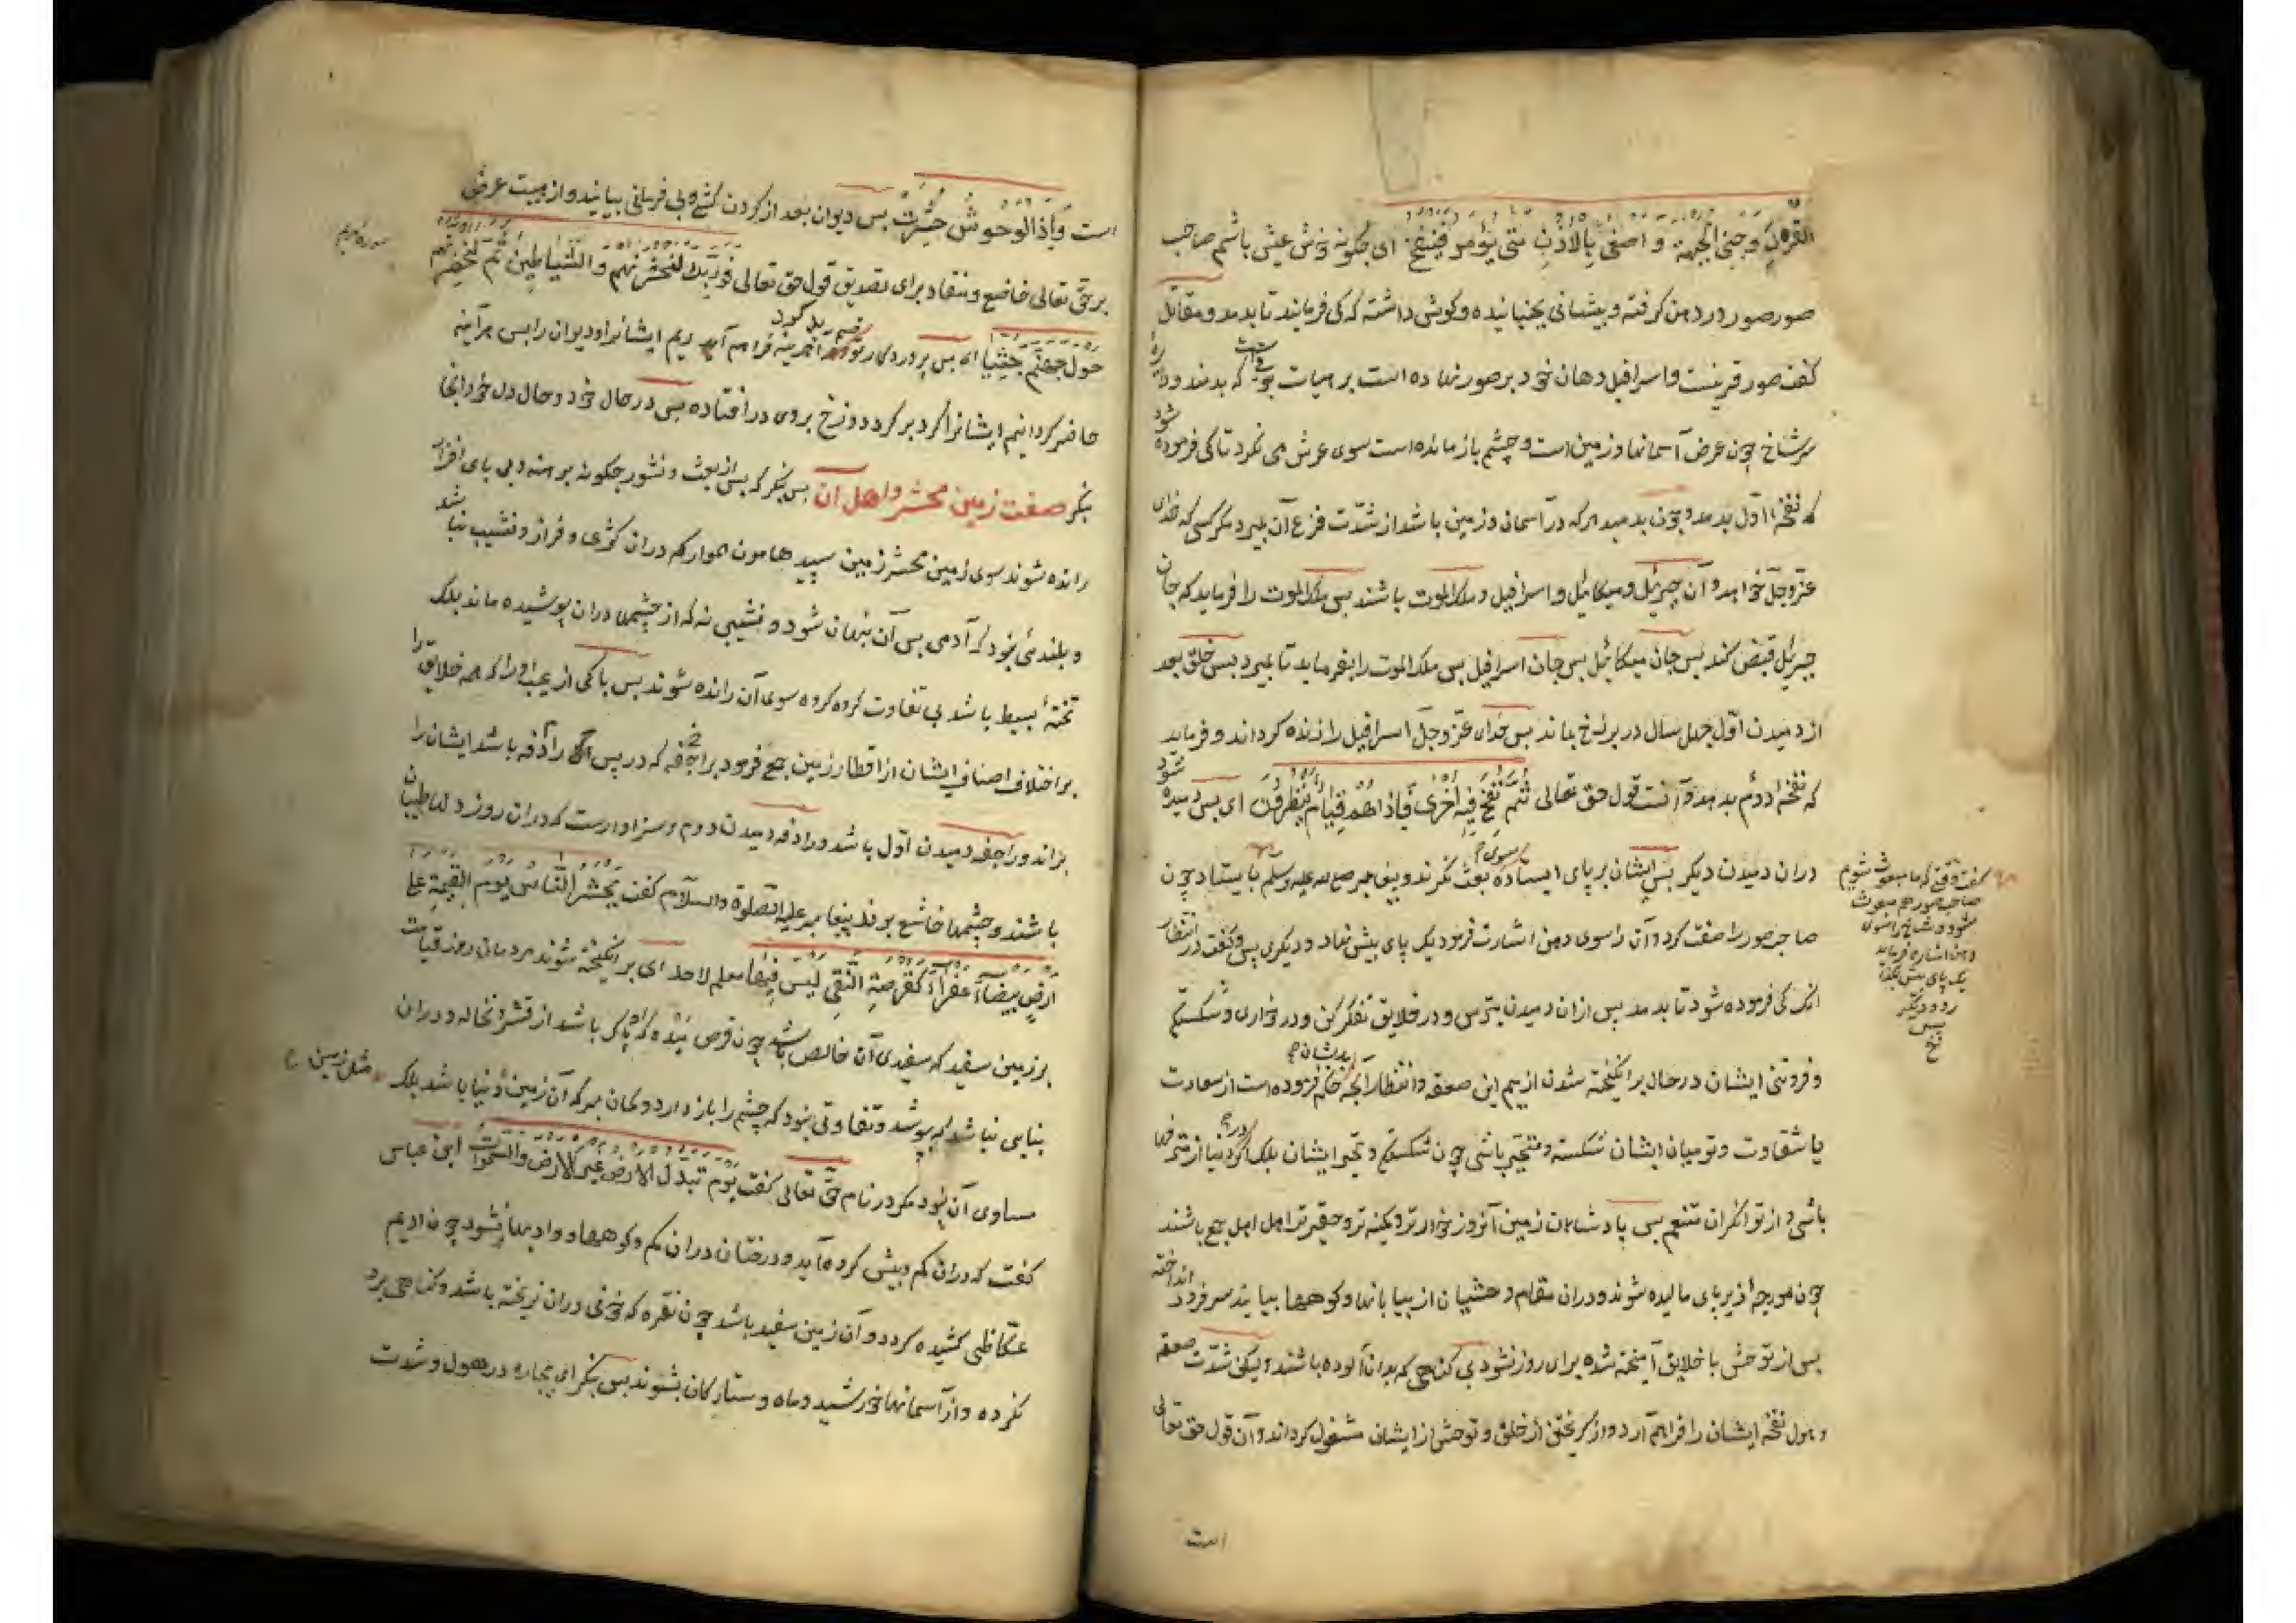 القرن و حنی الجبهة و اصغی بالاذن متی یؤمر فینفخ ای چکونه خوش عیش باشم صاحب
صور صور در دهن کرفته و پیشانی بجنبانیده و کوش داشته که کی فرمایند تا بدمد و مقاتل
کفت صور قرنیست و اسرافیل دهان خود بر صور نهاده است بر هیات بوقی که بدمند و دایرۀ
سر شاخ چون عرض آسمانها و زمین است و چشم باز مانده است سوی عرش می نکرد تا کی فرموده شود
که نفخۀ اول بدمد و چون بدمد هر که در آسمان و زمین باشد از شدّت فزع آن بمیرد مکر کسی که خدای
عزّ و جلّ خواهد و آن جبرئیل و میکائیل و اسرافیل و ملک الموت باشند پس ملک الموت را فرماید که جان
جبرئیل قبض کند پس جان میکائیل پس جان اسرافیل پس ملک الموت را بفرماید تا بمیرد پس خلق بعد
از دمیدن اوّل چهل سال در برزخ بماند پس خدای عزّ و جلّ اسرافیل را زنده کرداند و فرماید
که نفخۀ دوم بدمد و آنست قول حق تعالی ثُمّ نُفِخَ فیه أُخری فإذا هُم قِیامٌ یَنظُرونَ ای پس دمیده شود
دران دمیدن دیکر پس ایشان بر پای ایستاده سوی بعث نکرند و پیغمبر صلی الله علیه وسلم بایستاد چون
صاحب صور را صفت کرد و آن را سوی دهن اشارت فرمود یک پای پیش نهاد و دیکری پس و کفت در انتظار
آنک کی فرموده شود تا بدمد پس ازان دمیدن بترس و در خلایق تفکر کن و در خواری و شکستکی
و فروتنی ایشان در حال برانکیخته شدن از بیم این صعقه و انتظار آنچه بدیشان حکم فرموده است از سعادت
یا شقاوت و تو میان ایشان شکسته و متحیر باشی چون شکستکی و تحیر ایشان بلک اکر در دنیا از مترفهان
باشی و از توانکران متنعم پس پادشاهان زمین آنروز خوارتر و کمینه تر و حقیرتر اهل جمع باشند
چون مورچه زیر پای مالیده شوند و دران مقام وحشیان از بیابانها و کوهها بیایند سر فرود انداخته
پس از توحش با خلایق آمیخته شده برای روز نشور بی کناهی که بدان آلوده باشند و لیکن شدّت صعقه
و هول نفخه ایشان را فراهم آرد و از کریختن از خلق و توحش از ایشان مشغول کرداند و آن قول حق تعالی
کفت وقتی که ما مبعوث شویم
صاحب صور هم مبعوث
شود و شاخ را سوی
دهن اشاره فرماید
یک پای پیش
رود و دیکر
پس
است
است وَإِذَا الوُحوشُ حُشِرَتْ پس دیوان بعد از کردن کشی و بی فرمانی بیایند و از هیبت عرض
بر حق تعالی خاضع و منقاد برای تصدیق قول حق تعالی فَوَرَبِّكَ لَنَحشُرَنَّهُم وَالشَّياطِينَ ثُمّ لَنُحضِرَنَّهُم
حَولَ جَهَنَّمَ جِثِيًّا ای پس پروردکار تو هر آینه فراهم آریم ایشانرا و دیوان را پس هر آینه
حاضر کردانیم ایشانرا کرد بر کرد دوزخ بروی در افتاده پس در حال خود و حال دل خود آنجا
بنکر صفت زمین محشر و اهل آن پس بنکر که پس از بعث و نشور چکونه برهنه و بی پای افزار
رانده شوند سوی زمین محشر زمین سپید هامون هموار که دران کوژی و فراز و نشیب نباشد
و بلندئی نبود که آدمی پس آن پنهان شود و نشیبی نه که از چشمها دران پوشیده ماند بلک
تختۀ بسیط باشد بی تفاوت کروه کروه سوی آن رانده شوند پس پاکی از عیب او را که همه خلایق را
بر اختلاف اصناف ایشان از اقطار زمین جمع فرمود براجفه که در پس آن رادفه باشد ایشان را
براند و راجفه دمیدن اوّل باشد و رادفه دمیدن دوم و سزاوارست که دران روز دلها طپان
باشند و چشمها خاشع بوند پیغامبر علیه الصلوة والسلام کفت یُحشَرُ النّاسُ یومَ القیمةِ علی
ارضٍ بیضاءَ عفراءَ کقرصةِ النقی لیس فیها معلم لاحد ای برانکیخته شوند مردمان روز قیامت
بر زمین سفید که سفیدی آن خالص باشد چون قرص میده که پاک باشد از قشر و نخاله و دران
بنایی نباشد که بپوشد و تفاوتی نبود که چشم را باز دارد و کمان مبر که آن زمین مثل زمین دنیا باشد بلک
مساوی آن نبود مکر در نام حق تعالی کفت یَومَ تُبَدَّلُ الأرضُ غَیرَ الأرضِ وَالسَّمواتُ ابن عباس
کفت که دران کم و بیش کرده آید و درختان دران کم و کوهها و وادیها نشود چون ادیم
عکاظی کشیده کردد و آن زمین سفید باشد چون نقره که خونی دران نریخته باشد و کناهی برو
نکرده و از آسمانها خورشید و ماه و ستارکان بشوند پس بنکر ای بیچاره در هول و شدت
سوره مریم